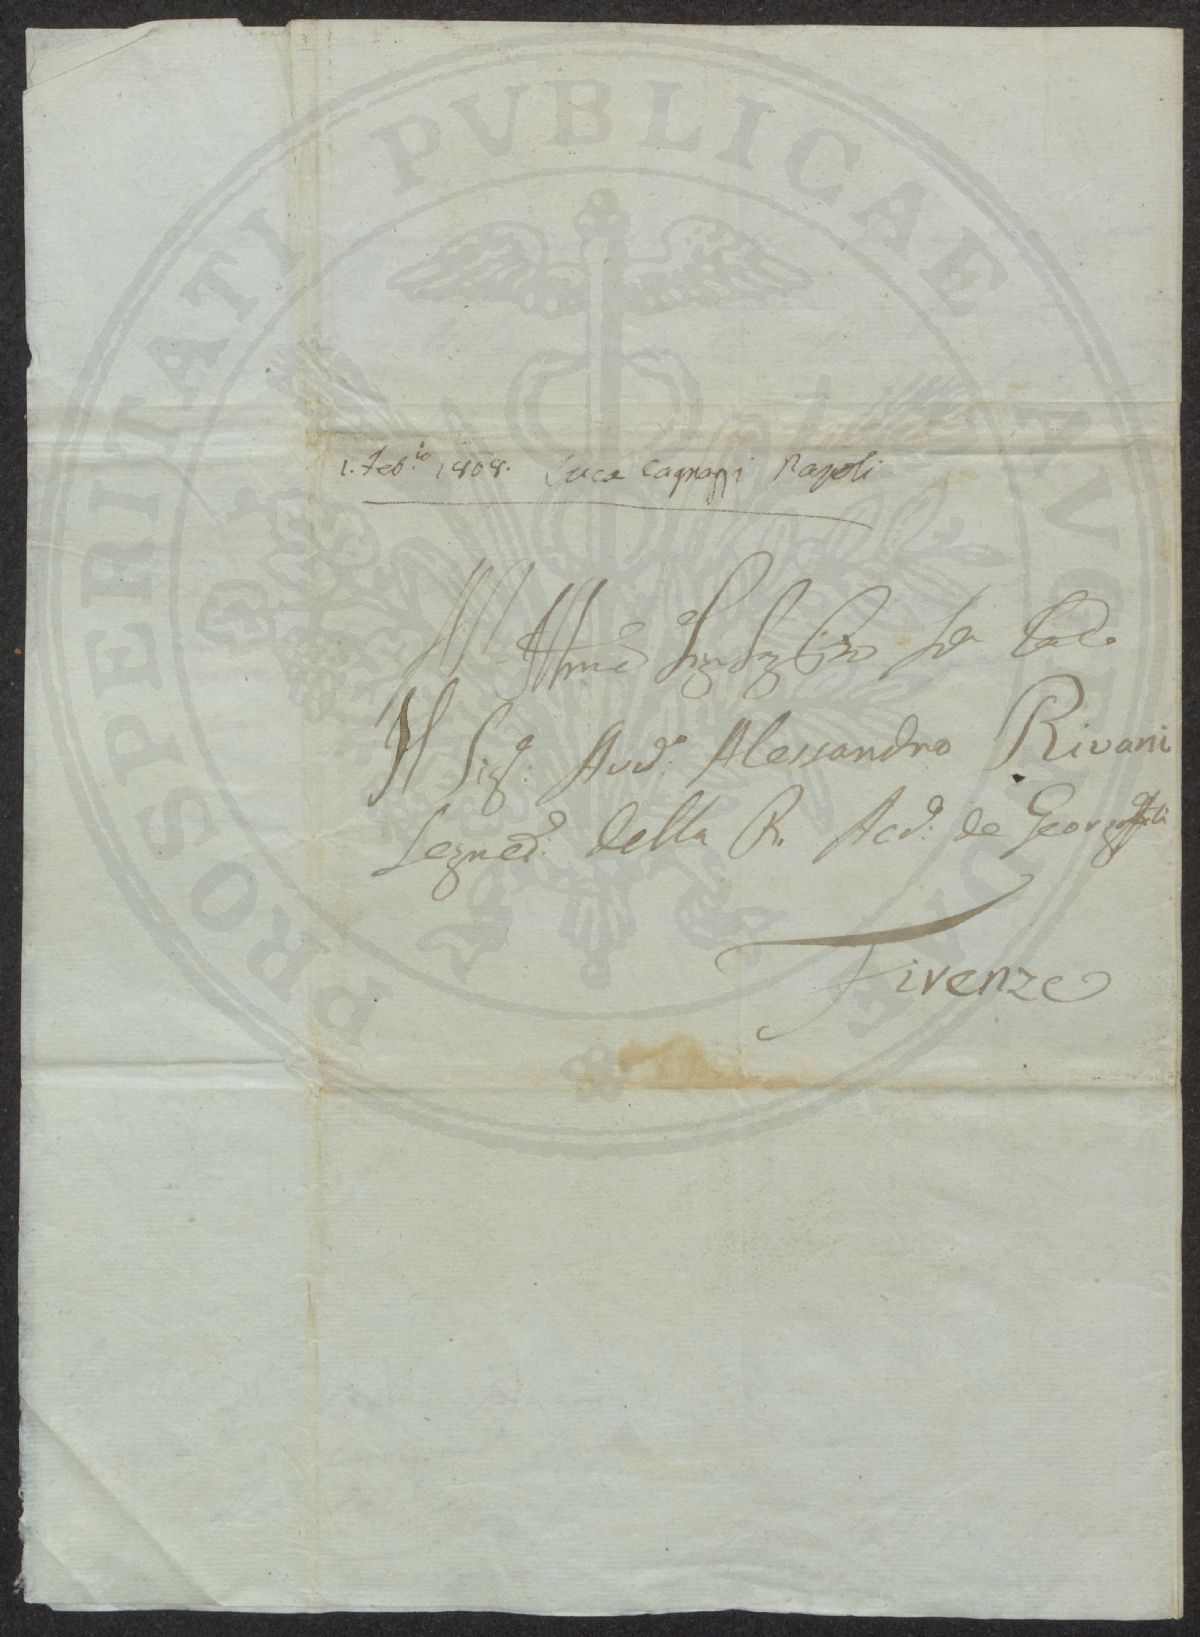 PROSPERITATI PVBLICAE AVGENDAE
1. Feb.io 1808. Luca Cagnazzi Napoli
All' Illmo Sig Sig
Il Sigr. Aud.e Alessandro Rivani
Segret.o della R. Acd.a de Georgofili
Firenze